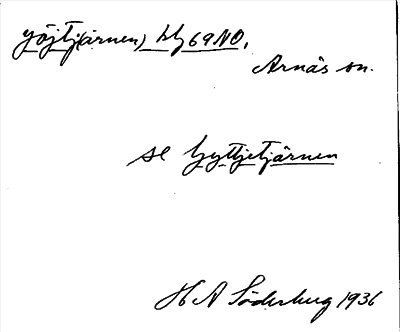 yöjtj(ärnen) blj 69NO,
Arnäs sn.
se Gyttjetjärnen
H A Söderberg 1936